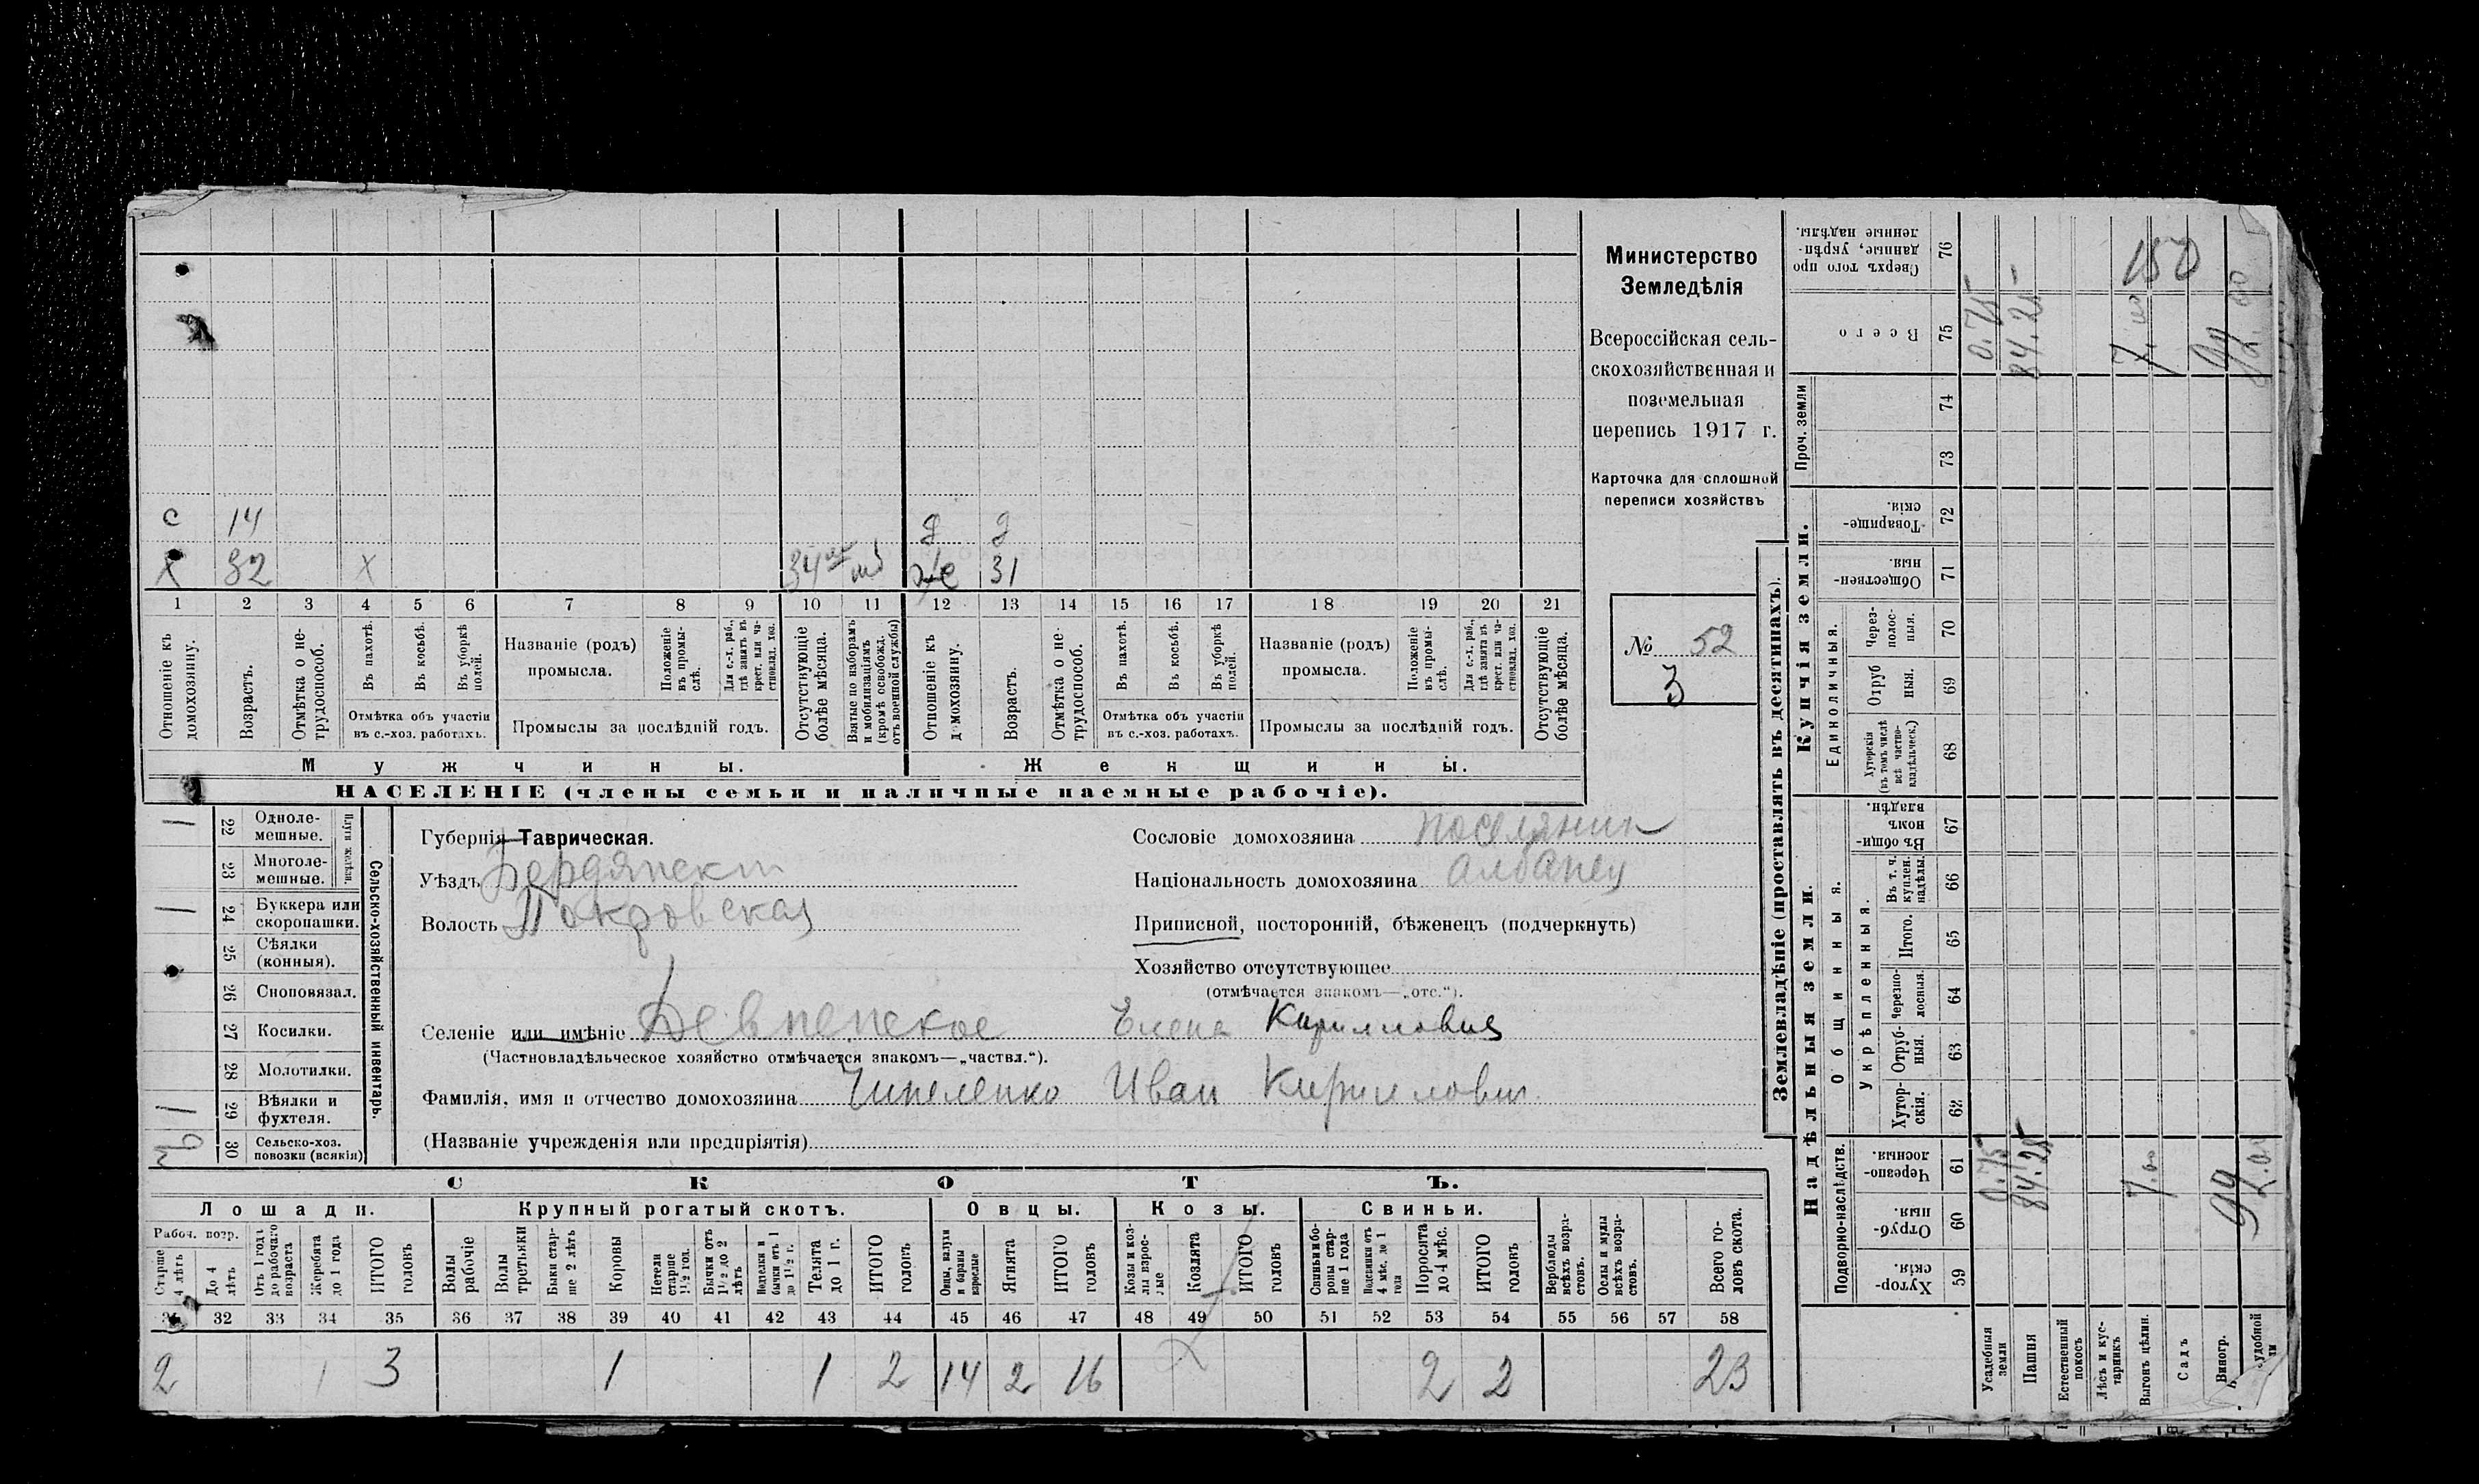 с 14 д 9
х 32 х 34 ж 31
1 2 3 4 5 6 7 8 9 10 11 12 13 14 15 16 17 18 19 20 21
Отношеніе къ домохозяину.
Возрастъ.
Отмѣтка о не-трудоспособ.
Въ пахотѣ.
Въ косьбѣ.
Въ уборкѣ полей.
Отмѣтка объ участіи
въ с.-хоз. работахъ.
Названіе (родъ)
промысла.
Положеніе въ промы-слѣ.
Для с.-х. раб., гдѣ занятъ въ крест. или ча-стновлад. хоз.
Промыслы за послѣдній годъ.
Отсутствующіе болѣе мѣсяца.
Взятые по наборамъ и мобилизаціямъ (кромѣ освобожд. отъ военной службы)
Отношеніе къ домохозяину.
Возрастъ.
Отмѣтка о не-трудоспособ.
Въ пахотѣ.
Въ косьбѣ.
Въ уборкѣ полей.
Отмѣтка объ участіи
въ с.-хоз. работахъ.
Названіе (родъ)
промысла.
Положеніе въ промы-слѣ.
Для с.-х. раб., гдѣ занята въ крест. или ча-стновлад. хоз.
Промыслы за послѣдній годъ.
Отсутствующіе болѣе мѣсяца.
Мужчины. Женщины.
НАСЕЛЕНІЕ (члены семьи и наличные наемные рабочіе).
Министерство
Земледѣлія
Всероссійская сель-
скохозяйственная и
поземельная
перепись 1917 г.
Карточка для сплошной
переписи хозяйствъ
№ 52
3
1 22 Одноле-мешные.
23 Многоле-мешные.
Плуги желѣзн.
1 24 Буккера или скоропашки.
25 Сѣялки (конныя).
26 Сноповязал.
27 Косилки.
28 Молотилки.
1 29 Вѣялки и фухтеля.
30 Сельско-хоз. повозки (всякія)
Сельско-хозяйственный инвентарь.
Губернія Таврическая.
Уѣздъ Бердянскій
Волость Покровская
Сословіе домохозяина поселянин
Національность домохозяина албанец
Приписной, посторонній, бѣженец (подчеркнуть)
Хозяйство отсутствующее
(отмѣчается знакомъ—„отс.“).
Селеніе или имѣніе Девненское Елена Кирилловна
(Частновладѣльческое хозяйство отмѣчается знакомъ—„частвл.“).
Фамилія, имя и отчество домохозяина Чипеленко Иван Кириллович
(Названіе учрежденія или предпріятія)
СКОТЪ.
Лошади. Крупный рогатый скотъ. Овцы. Козы. Свиньи.
Рабоч. возр.
Старше 4 лѣтъ
До 4 лѣтъ
Отъ 1 года до рабочаго возраста
Жеребята до 1 года
ИТОГО головъ
Волы рабочіе
Волы третьяки
Быки стар-ше 2 лѣтъ
Коровы
Нетели старше 1½ год.
Бычки отъ 1½ до 2 лѣтъ
Подтелки и бычки отъ 1 до 1½ г.
Телята до 1 г.
ИТОГО головъ
Овцы, валухи и бараны взрослые
Ягнята
ИТОГО головъ
Козы и коз-лы взрос-лые
Козлята
ИТОГО головъ
Свиньи и бо-роны стар-ше 1 года
Подсвинки отъ 4 мѣс. до 1 года
Поросята до 4 мѣс.
ИТОГО головъ
Верблюды всѣхъ возра-стовъ.
Ослы и мулы всѣхъ возра-стовъ.
Всего го-ловъ скота.
31 32 33 34 35 36 37 38 39 40 41 42 43 44 45 46 47 48 49 50 51 52 53 54 55 56 57 58
2 1 3 1 1 2 14 2 16 2 2 23
Землевладѣніе (проставлять въ десятинахъ).
Надѣльныя земли. Купчія земли. Проч. земли
Подворно-наслѣдств.
Общинныя.
Укрѣпленныя.
Единоличныя.
Хутор-скія. 59
Отруб-ныя. 60
Черезпо-лосныя. 61
Хутор-скія. 62
Отруб-ныя. 63
Черезпо-лосныя. 64
Итого. 65
Въ т. ч. куплен. надѣлы. 66
Въ общи-номъ владѣн. 67
Хуторскія (въ томъ числѣ всѣ частно-владѣльческ.) 68
Отруб ныя. 69
Через-полос-ныя. 70
Обществен-ныя. 71
Товарище-скія. 72
73
74
Всего 75
Сверхъ того про данные, укрѣп-ленные надѣлы. 76
Усадебныя земли 0.75 0.75
Пашня 84.25 84.25
Естественный покосъ
Лѣсъ и кус-тарникъ
Выгонъ цѣлин. 7.00 7.00 150
Садъ
Виногр.
92.00 92.00